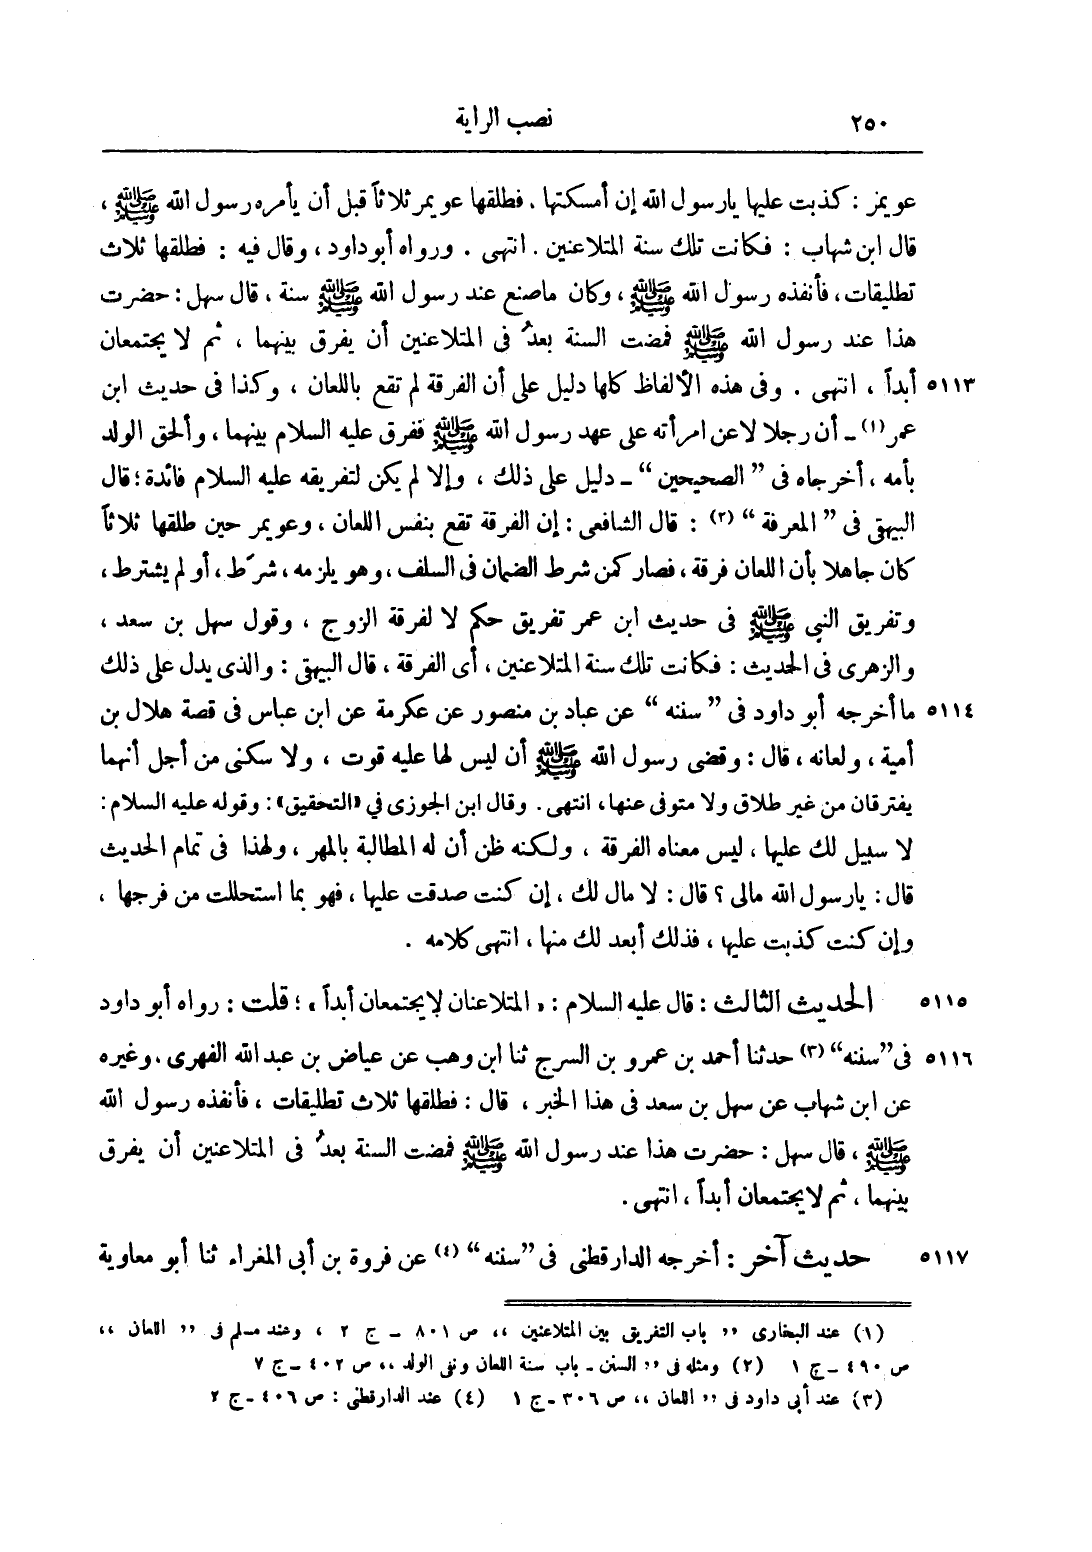 ٢٥٠ نصب الراية
عويمر : كذبت عليها يارسول الله إن أمسكتها ، فطلقها عويمر ثلاثاً قبل أن يأمره رسول الله ﷺ ،
قال ابن شهاب : فكانت تلك سنة المتلاعنين . انتهى . ورواه أبو داود ، وقال فيه : فطلقها ثلاث
تطليقات ، فأنفذه رسول الله ﷺ ، وكان ماصنع عند رسول الله ﷺ سنة ، قال سهل : حضرت
هذا عند رسول الله ﷺ فمضت السنة بعدُ فى المتلاعنين أن يفرق بينهما ، ثم لا يجتمعان
٥١١٣ أبداً ، انتهى . وفى هذه الألفاظ كلها دليل على أن الفرقة لم تقع باللعان ، وكذا فى حديث ابن
عمر (١) ـ أن رجلا لاعن امرأته على عهد رسول الله ﷺ ففرق عليه السلام بينهما ، وألحق الولد
بأمه ، أخرجاه فى ” الصحيحين “ ـ دليل على ذلك ، وإلا لم يكن لتفريقه عليه السلام فائدة ؛ قال
البيهقى فى ” المعرفة “ (٢) : قال الشافعى : إن الفرقة تقع بنفس اللعان ، وعويمر حين طلقها ثلاثاً
كان جاهلا بأن اللعان فرقة ، فصار كمن شرط الضمان فى السلف ، وهو يلزمه ، شرَط ، أو لم يشترط ،
وتفريق النبى ﷺ فى حديث ابن عمر تفريق حكم لا لفرقة الزوج ، وقول سهل بن سعد ،
والزهرى فى الحديث : فكانت تلك سنة المتلاعنين ، أى الفرقة ، قال البيهقى : والذى يدل على ذلك
٥١١٤ ما أخرجه أبو داود فى ” سننه “ عن عباد بن منصور عن عكرمة عن ابن عباس فى قصة هلال بن
أمية ، ولعانه ، قال : وقضى رسول الله ﷺ أن ليس لها عليه قوت ، ولا سكنى من أجل أنهما
يفترقان من غير طلاق ولا متوفى عنها، انتهى. وقال ابن الجوزي في «التحقيق»: وقوله عليه السلام:
لا سبيل لك عليها ، ليس معناه الفرقة ، ولكنه ظن أن له المطالبة بالمهر ، ولهذا فى تمام الحديث
قال : يارسول الله مالى ؟ قال : لا مال لك ، إن كنت صدقت عليها ، فهو بما استحللت من فرجها ،
وإن كنت كذبت عليها ، فذلك أبعد لك منها ، انتهى كلامه .
٥١١٥ الحديث الثالث : قال عليه السلام : « المتلاعنان لايجتمعان أبداً » ؛ قلت : رواه أبو داود
٥١١٦ فى ” سننه “ (٣) حدثنا أحمد بن عمرو بن السرج ثنا ابن وهب عن عياض بن عبد الله الفهرى ، وغيره
عن ابن شهاب عن سهل بن سعد فى هذا الخبر ، قال : فطلقها ثلاث تطليقات ، فأنفذه رسول الله
ﷺ ، قال سهل : حضرت هذا عند رسول الله ﷺ فمضت السنة بعدُ فى المتلاعنين أن يفرق
بينهما ، ثم لايجتمعان أبداً ، انتهى .
٥١١٧ حديث آخر : أخرجه الدارقطنى فى ” سننه “ (٤) عن فروة بن أبى المغراء ثنا أبو معاوية
(١) عند البخارى ,, باب التفريق بين المتلاعنين ،، ص ٨٠١ ـ ج ٢ ، وعند مسلم فى ,, اللعان ،،
ص ٤٩٠ ـ ج ١ (٢) ومثله فى ,, السنن ـ باب سنة اللعان ونفى الولد ،، ص ٤٠٢ ـ ج ٧
(٣) عند أبى داود فى ,, اللعان ،، ص ٣٠٦ ـ ج ١ (٤) عند الدارقطنى : ص ٤٠٦ ـ ج ٢